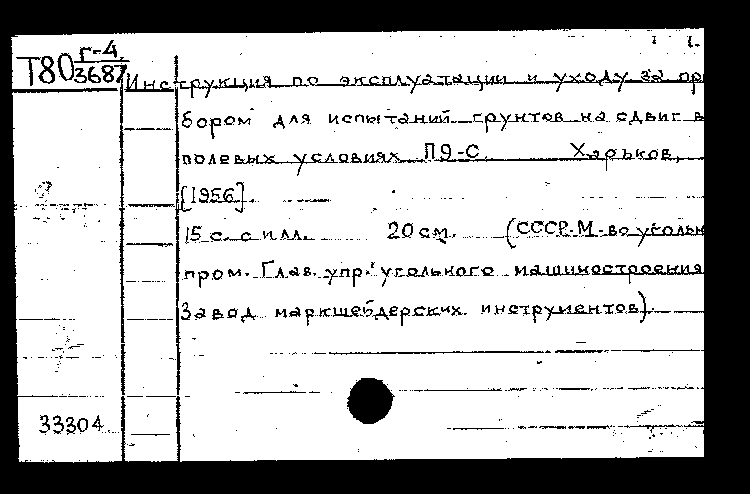 Т80 г-4
3687
Инструкция по эксплуатации и уходу за при
бором для испытаний грунтов на сдвиг в
полевых условиях П9-С. Харьков,
[1956].
15 с. с илл. 20 см. (СССР. М-во угольн
пром. Глав. упр. угольного машиностроения
Завод маркшейдерских инструментов).
33304